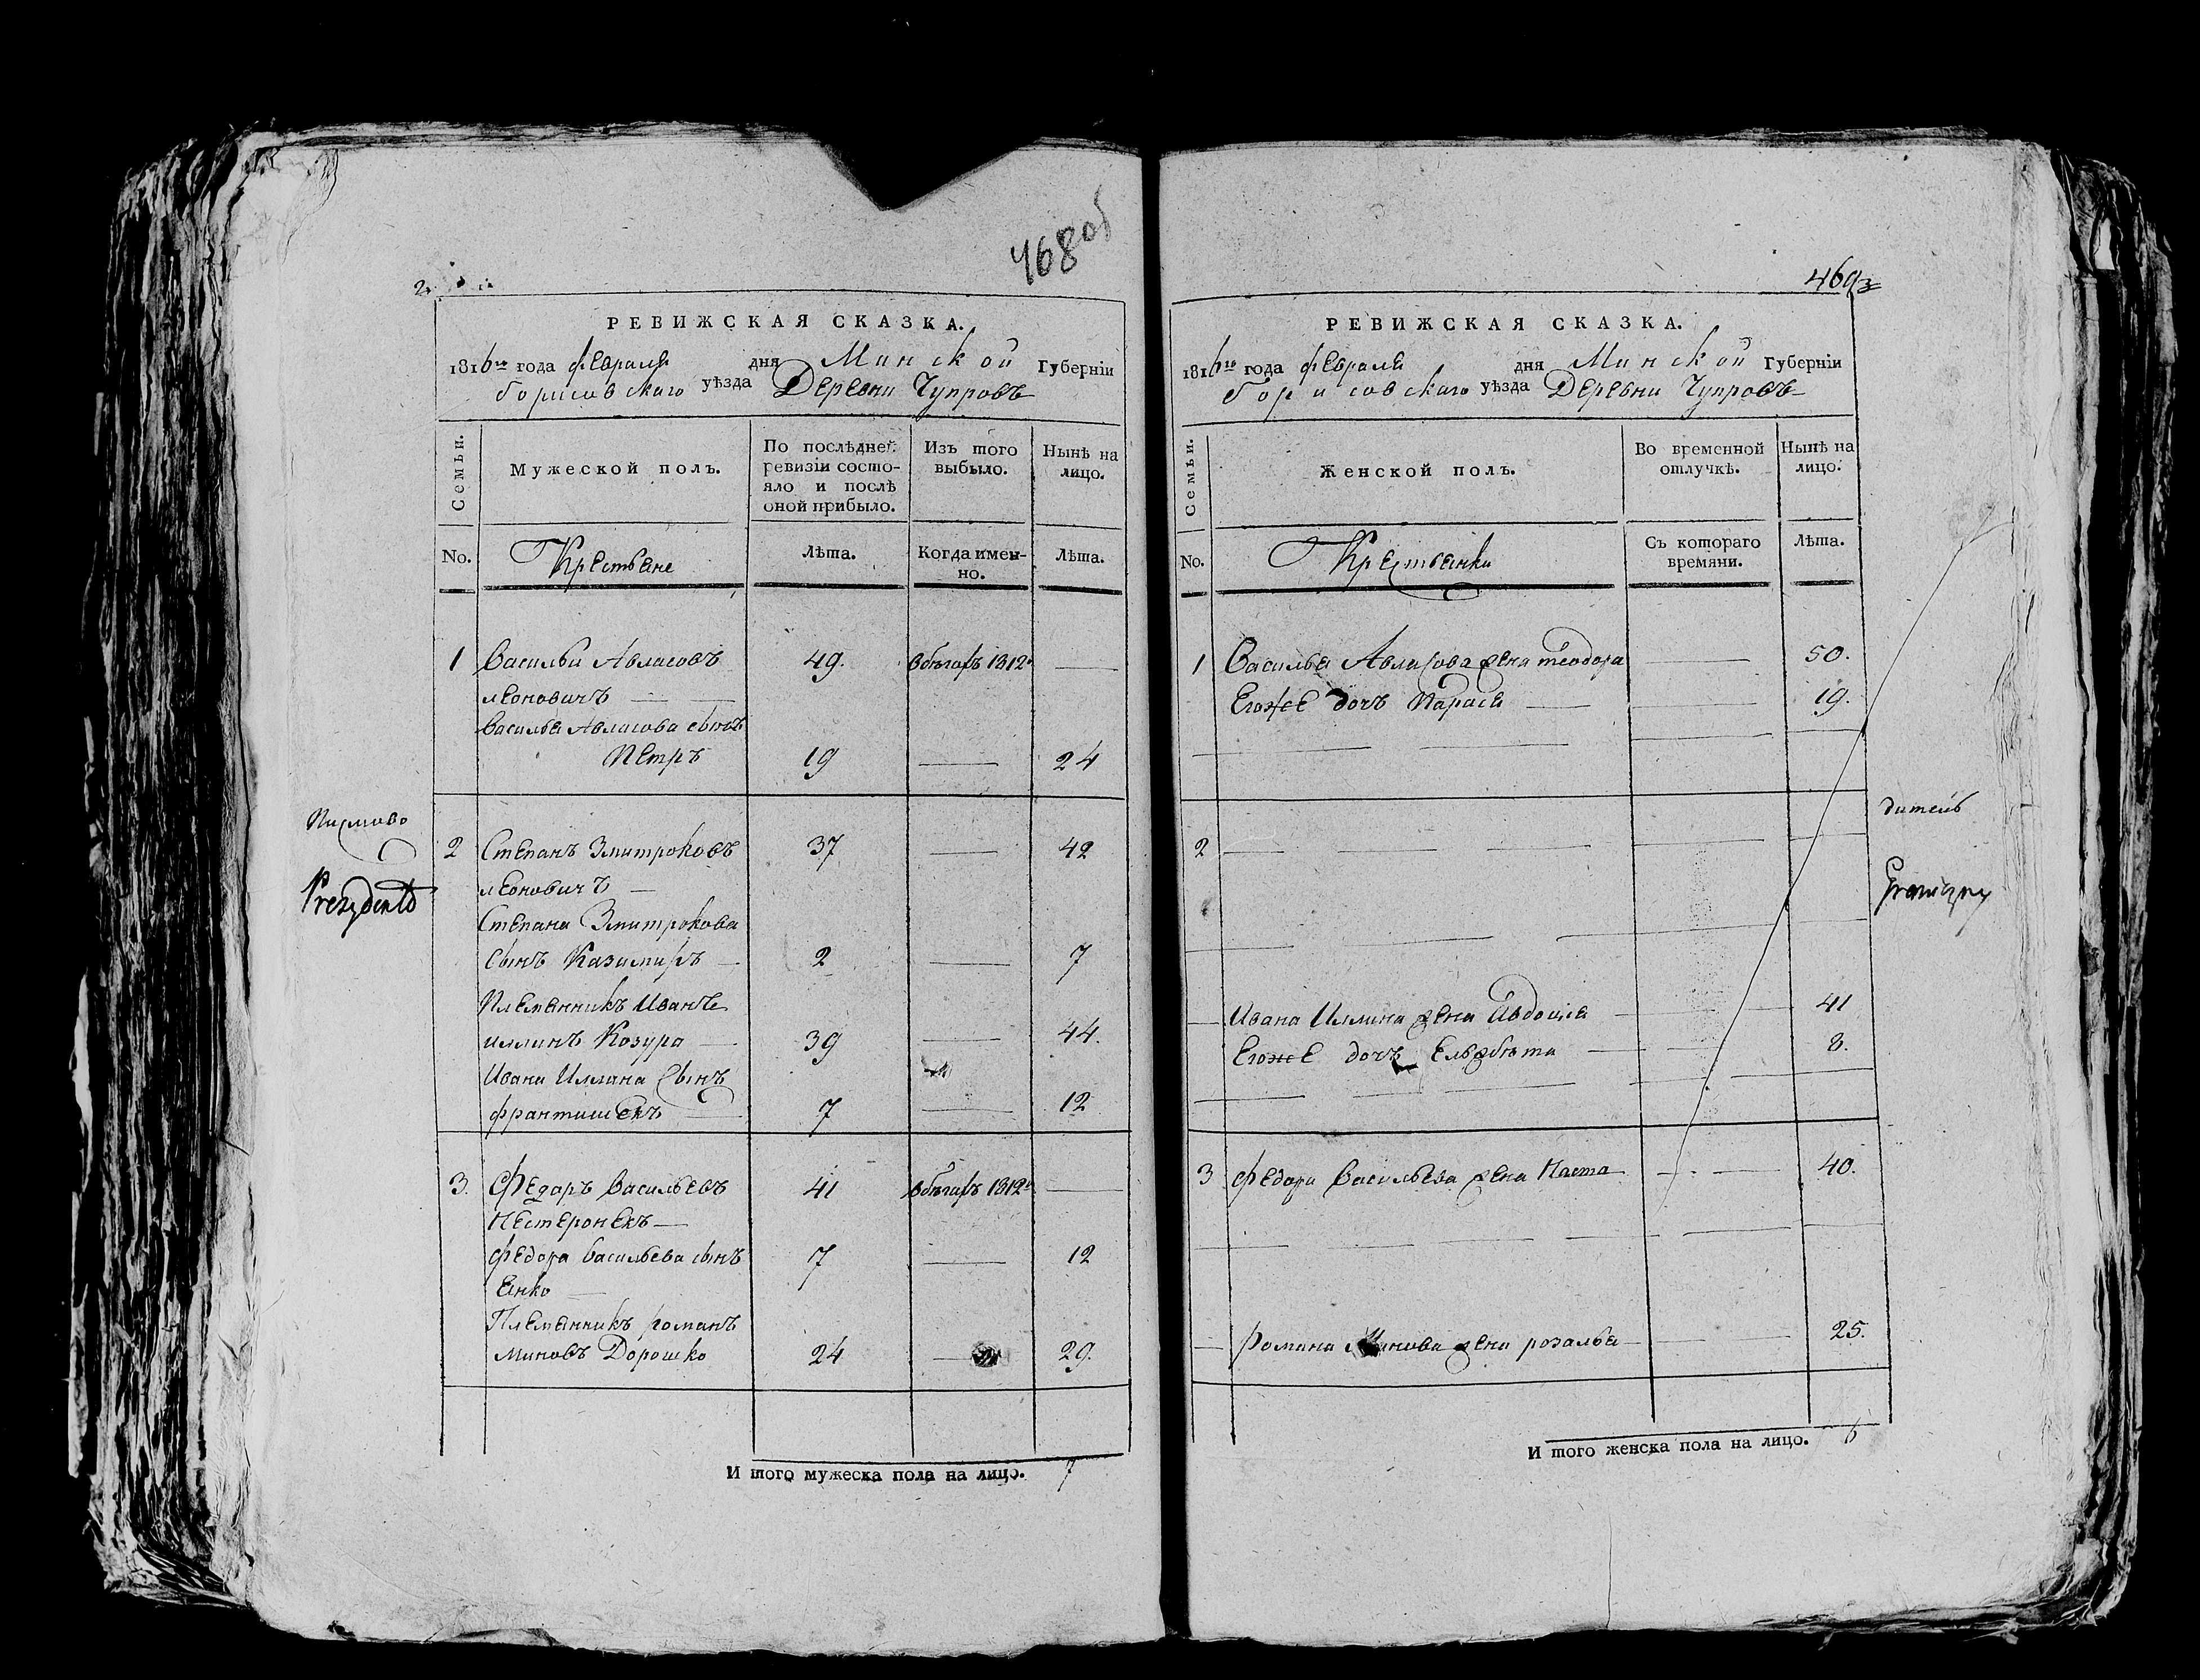 468об
2.
РЕВИЖСКАЯ СКАЗКА.
1816го года февраля дня Минской Губерніи
борисовскаго уѣзда Деревни Чупровъ
Семьи.
Мужеской полъ.
По послѣдней ревизіи состо-
яло и послѣ
оной прибыло.
Изъ того
выбыло.
Нынѣ на
лицо.
No.
Крестьяне
Лѣта.
Когда имен-
но.
Лѣта.
1 Василий Авласовъ 49. в бѣгахъ 1812го —
леоновичъ —
Василья Авласова сынъ
Петръ 19 — 24
Писмово
2 Степанъ Змитроковъ 37 — 42
леоновичъ —
Prezydent
Степана Змитрокова
сынъ Казимиръ — 2 — 7
Племянникъ Иванъ
иллинъ Козура — 39 — 44.
Ивана Иллина сынъ
франтишекъ — 7 — 12
3. Федоръ Васильевъ 41 в бѣгахъ 1812го —
Нестеронекъ —
федора васильева сынъ 7 — 12
Янко —
Племянникъ романъ
миновъ Дорошко 24 — 29.
И того мужеска пола на лицо. 7
469
3
РЕВИЖСКАЯ СКАЗКА.
1816го года февраля дня Минской Губерніи
борисовскаго уѣзда Деревни Чупровъ
Семьи.
Женской полъ.
Во временной
отлучкѣ.
Нынѣ на
лицо.
No.
Крестьянки
Съ котораго
времяни.
Лѣта.
1 Василья Авласова жена теодора — 50.
Егоже дочъ Парася — 19.
дитель
2 —
Graniczny
Ивана Иллина жена Авдоция — 41
Егоже дочъ Ельзбѣта — 8.
3 федора Васильева жена Наста — 40.
Романа Минова жена розалья — 25.
И того женска пола на лицо. 6